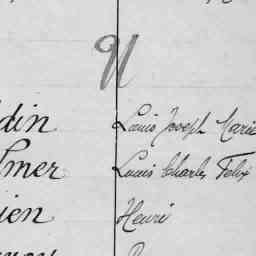 U
din Louis Joseph Marie
lmer Louis Charles Felix
ien Henri